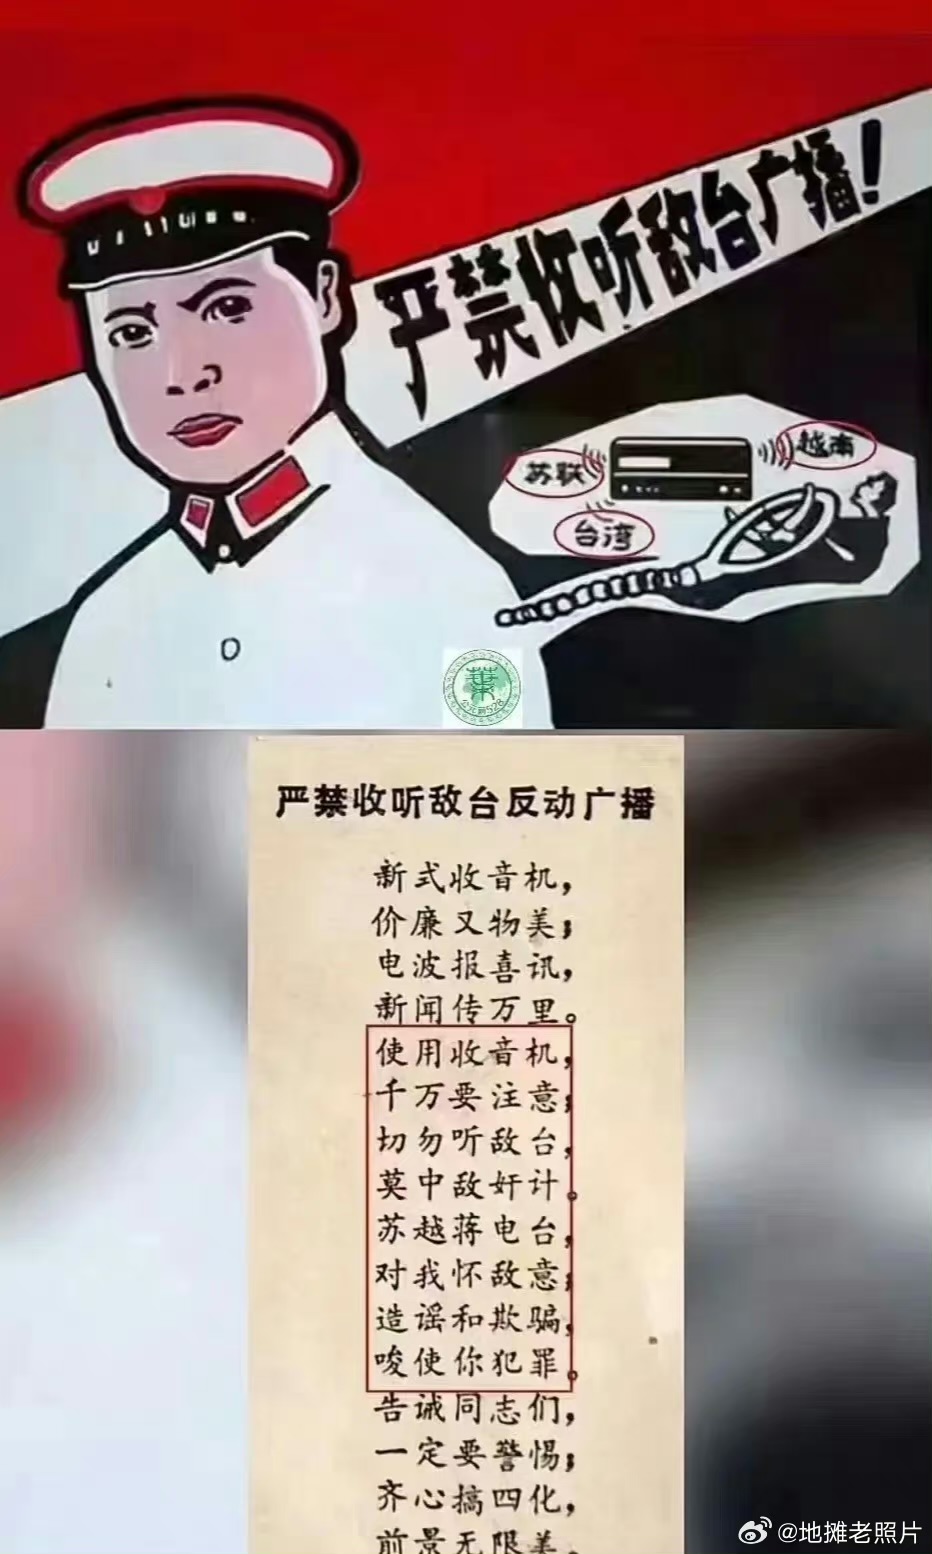 严禁收听敌台广播！
苏联
越南
台湾
严禁收听敌台反动广播
新式收音机，
价廉又物美；
电波报喜讯，
新闻传万里。
使用收音机，
千万要注意；
切勿听敌台，
莫中敌奸计。
苏越蒋电台，
对我怀敌意；
造谣和欺骗，
唆使你犯罪。
告诫同志们，
一定要警惕；
齐心搞四化，
前景无限美。
@地摊老照片